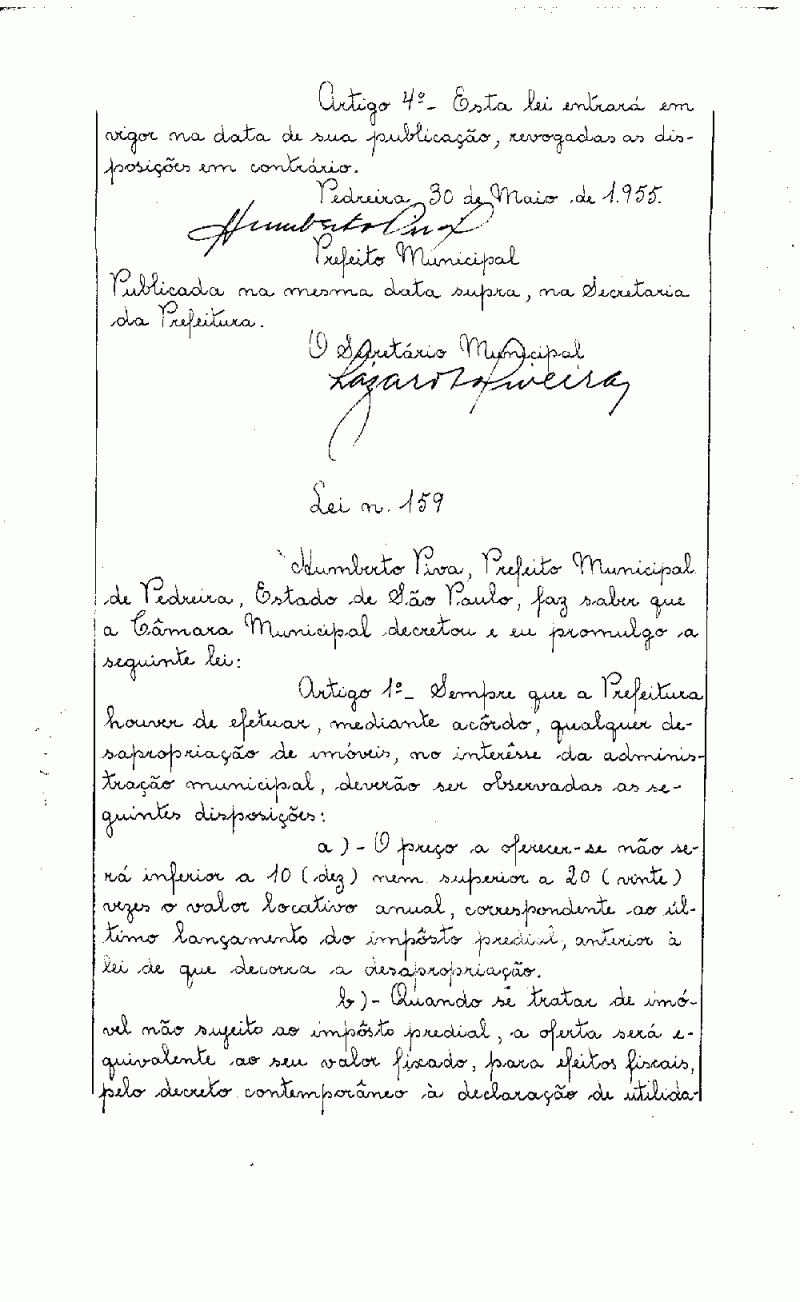 Artigo 4º- Esta lei entrará em
vigor na data de sua publicação, revogadas as dis-
posições em contrário.
Pedreira, 30 de Maio de 1.955.
Humberto Piva
Prefeito Municipal
Publicada na mesma data supra, na Secretaria
da Prefeitura.
O Secretário Municipal
Lázaro
Lei n. 159
Humberto Piva, Prefeito Municipal
de Pedreira, Estado de São Paulo, faz saber que
a Câmara Municipal decretou e eu promulgo a
seguinte lei:
Artigo 1º- Sempre que a Prefeitura
houver de efetuar, mediante acôrdo, qualquer de-
sapropriação de imóveis, no interêsse da adminis-
tração municipal, deverão ser observadas as se-
guintes disposições:
a)- O preço a oferecer-se não se-
rá inferior a 10 (dez) nem superior a 20 (vinte)
vezes o valor locativo anual, correspondente ao úl-
timo lançamento do impôsto predial, anterior à
lei de que decorra a desapropriação.
b)- Quando se tratar de imó-
vel não sujeito ao impôsto predial, a oferta será e-
quivalente ao seu valor fixado, para efeitos fiscais,
pelo decreto contemporâneo à declaração de utilida-